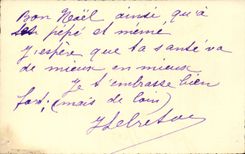 Bon Noël ainsi qu'à
ses pépé et mémé
J'espère que ta santé va
de mieux en mieux
Je t'embrasse bien
fort, (mais de loin)